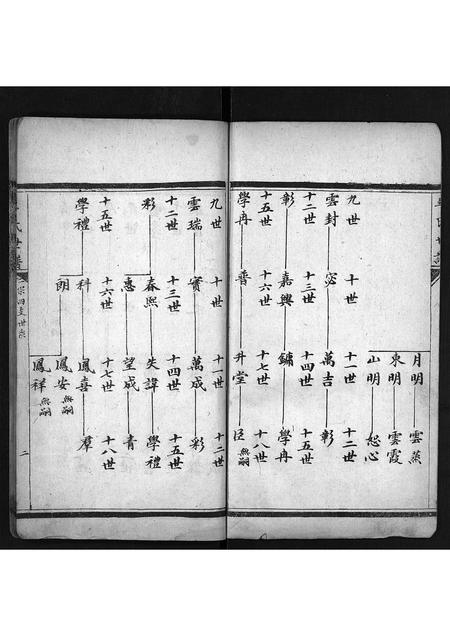 月明 雲蒸
東明 雲霞
山明 恕心
九世 十世 十一世 十二世
雲封 宓 萬吉 彰
十二世 十三世 十四世 十五世
彰 嘉興 鏞 學冉
十五世 十六世 十七世 十八世
學冉 普 升堂 無嗣
九世 十世 十一世 十二世
雲瑞 實 萬成 彩
十二世 十三世 十四世 十五世
彩 春熙 失諱 學禮
惠 望成 青
十五世 十六世 十七世 十八世
學禮 科 鳳喜 羣
朗 鳳安 無嗣
鳳祥 無嗣
氏世譜 二